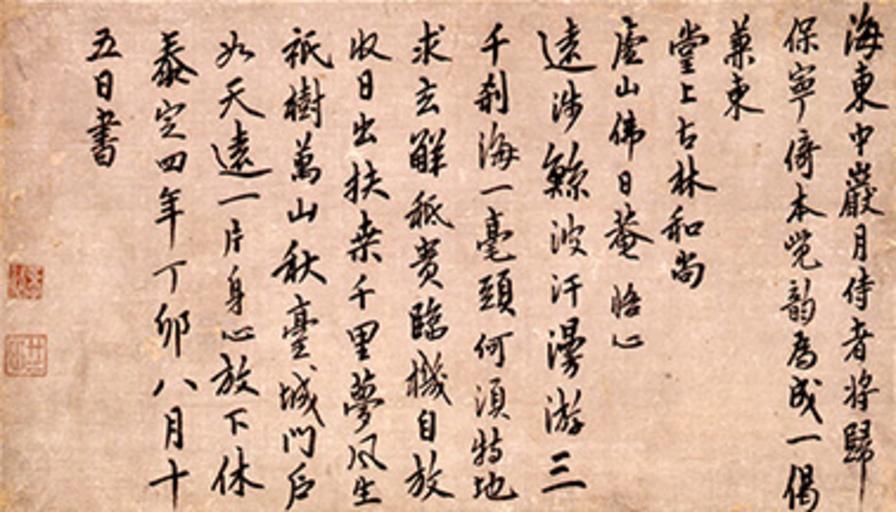 海東中巖月侍者將歸
保寧倚本覺韵爲成一偈
兼柬
堂上古林和尚
廬山佛日菴 悟心
遠涉鯨波汗漫游三
千刹海一毫頭何須特地
求玄解秖貴臨機自放
收日出扶桒千里夢風生
祇樹萬山秋臺城門戶
如天遠一片身心放下休
泰定四年丁卯八月十
五日書